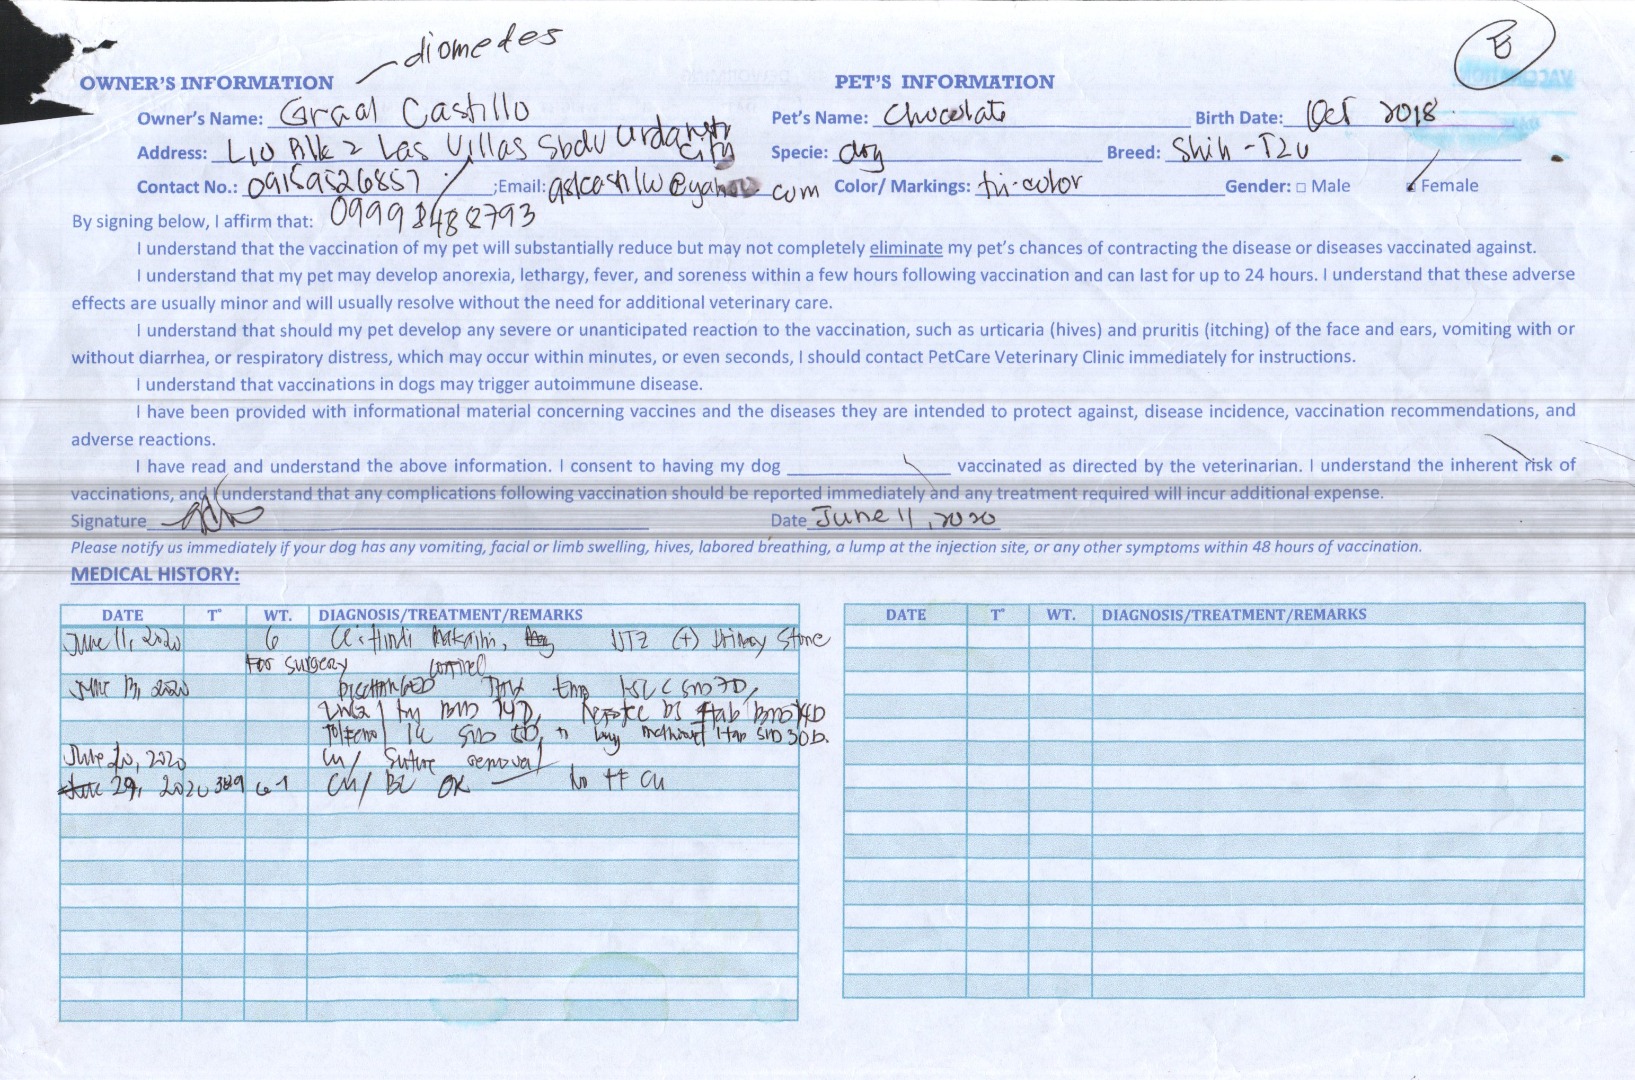 diomedes
E
OWNER'S INFORMATION
PET'S INFORMATION
Owner's Name: Graal Castillo
Pet's Name: Chocolate
Birth Date: Oct 2018
Address: L10 Blk 2 Las Villas Sbdv Urdaneta City
Specie: dog
Breed: Shih-Tzu
Contact No.: 09159526857 ;Email: @yahoo.com
Color/ Markings: tri-color
Gender: □ Male Female
09998488793
By signing below, I affirm that:
I understand that the vaccination of my pet will substantially reduce but may not completely eliminate my pet's chances of contracting the disease or diseases vaccinated against.
I understand that my pet may develop anorexia, lethargy, fever, and soreness within a few hours following vaccination and can last for up to 24 hours. I understand that these adverse
effects are usually minor and will usually resolve without the need for additional veterinary care.
I understand that should my pet develop any severe or unanticipated reaction to the vaccination, such as urticaria (hives) and pruritis (itching) of the face and ears, vomiting with or
without diarrhea, or respiratory distress, which may occur within minutes, or even seconds, I should contact PetCare Veterinary Clinic immediately for instructions.
I understand that vaccinations in dogs may trigger autoimmune disease.
I have been provided with informational material concerning vaccines and the diseases they are intended to protect against, disease incidence, vaccination recommendations, and
adverse reactions.
I have read and understand the above information. I consent to having my dog ____ vaccinated as directed by the veterinarian. I understand the inherent risk of
vaccinations, and I understand that any complications following vaccination should be reported immediately and any treatment required will incur additional expense.
Signature
Date June 11, 2020
Please notify us immediately if your dog has any vomiting, facial or limb swelling, hives, labored breathing, a lump at the injection site, or any other symptoms within 48 hours of vaccination.
MEDICAL HISTORY:
DATE T° WT. DIAGNOSIS/TREATMENT/REMARKS
DATE T° WT. DIAGNOSIS/TREATMENT/REMARKS
June 11, 2020 6 Hindi UTZ (+) Urinary Stone
For surgery
June 13, 2020
1 tab
June 20, 2020 CU/ Suture removal
29, 2020 389 6.1 CU/ BL OK No FF CU